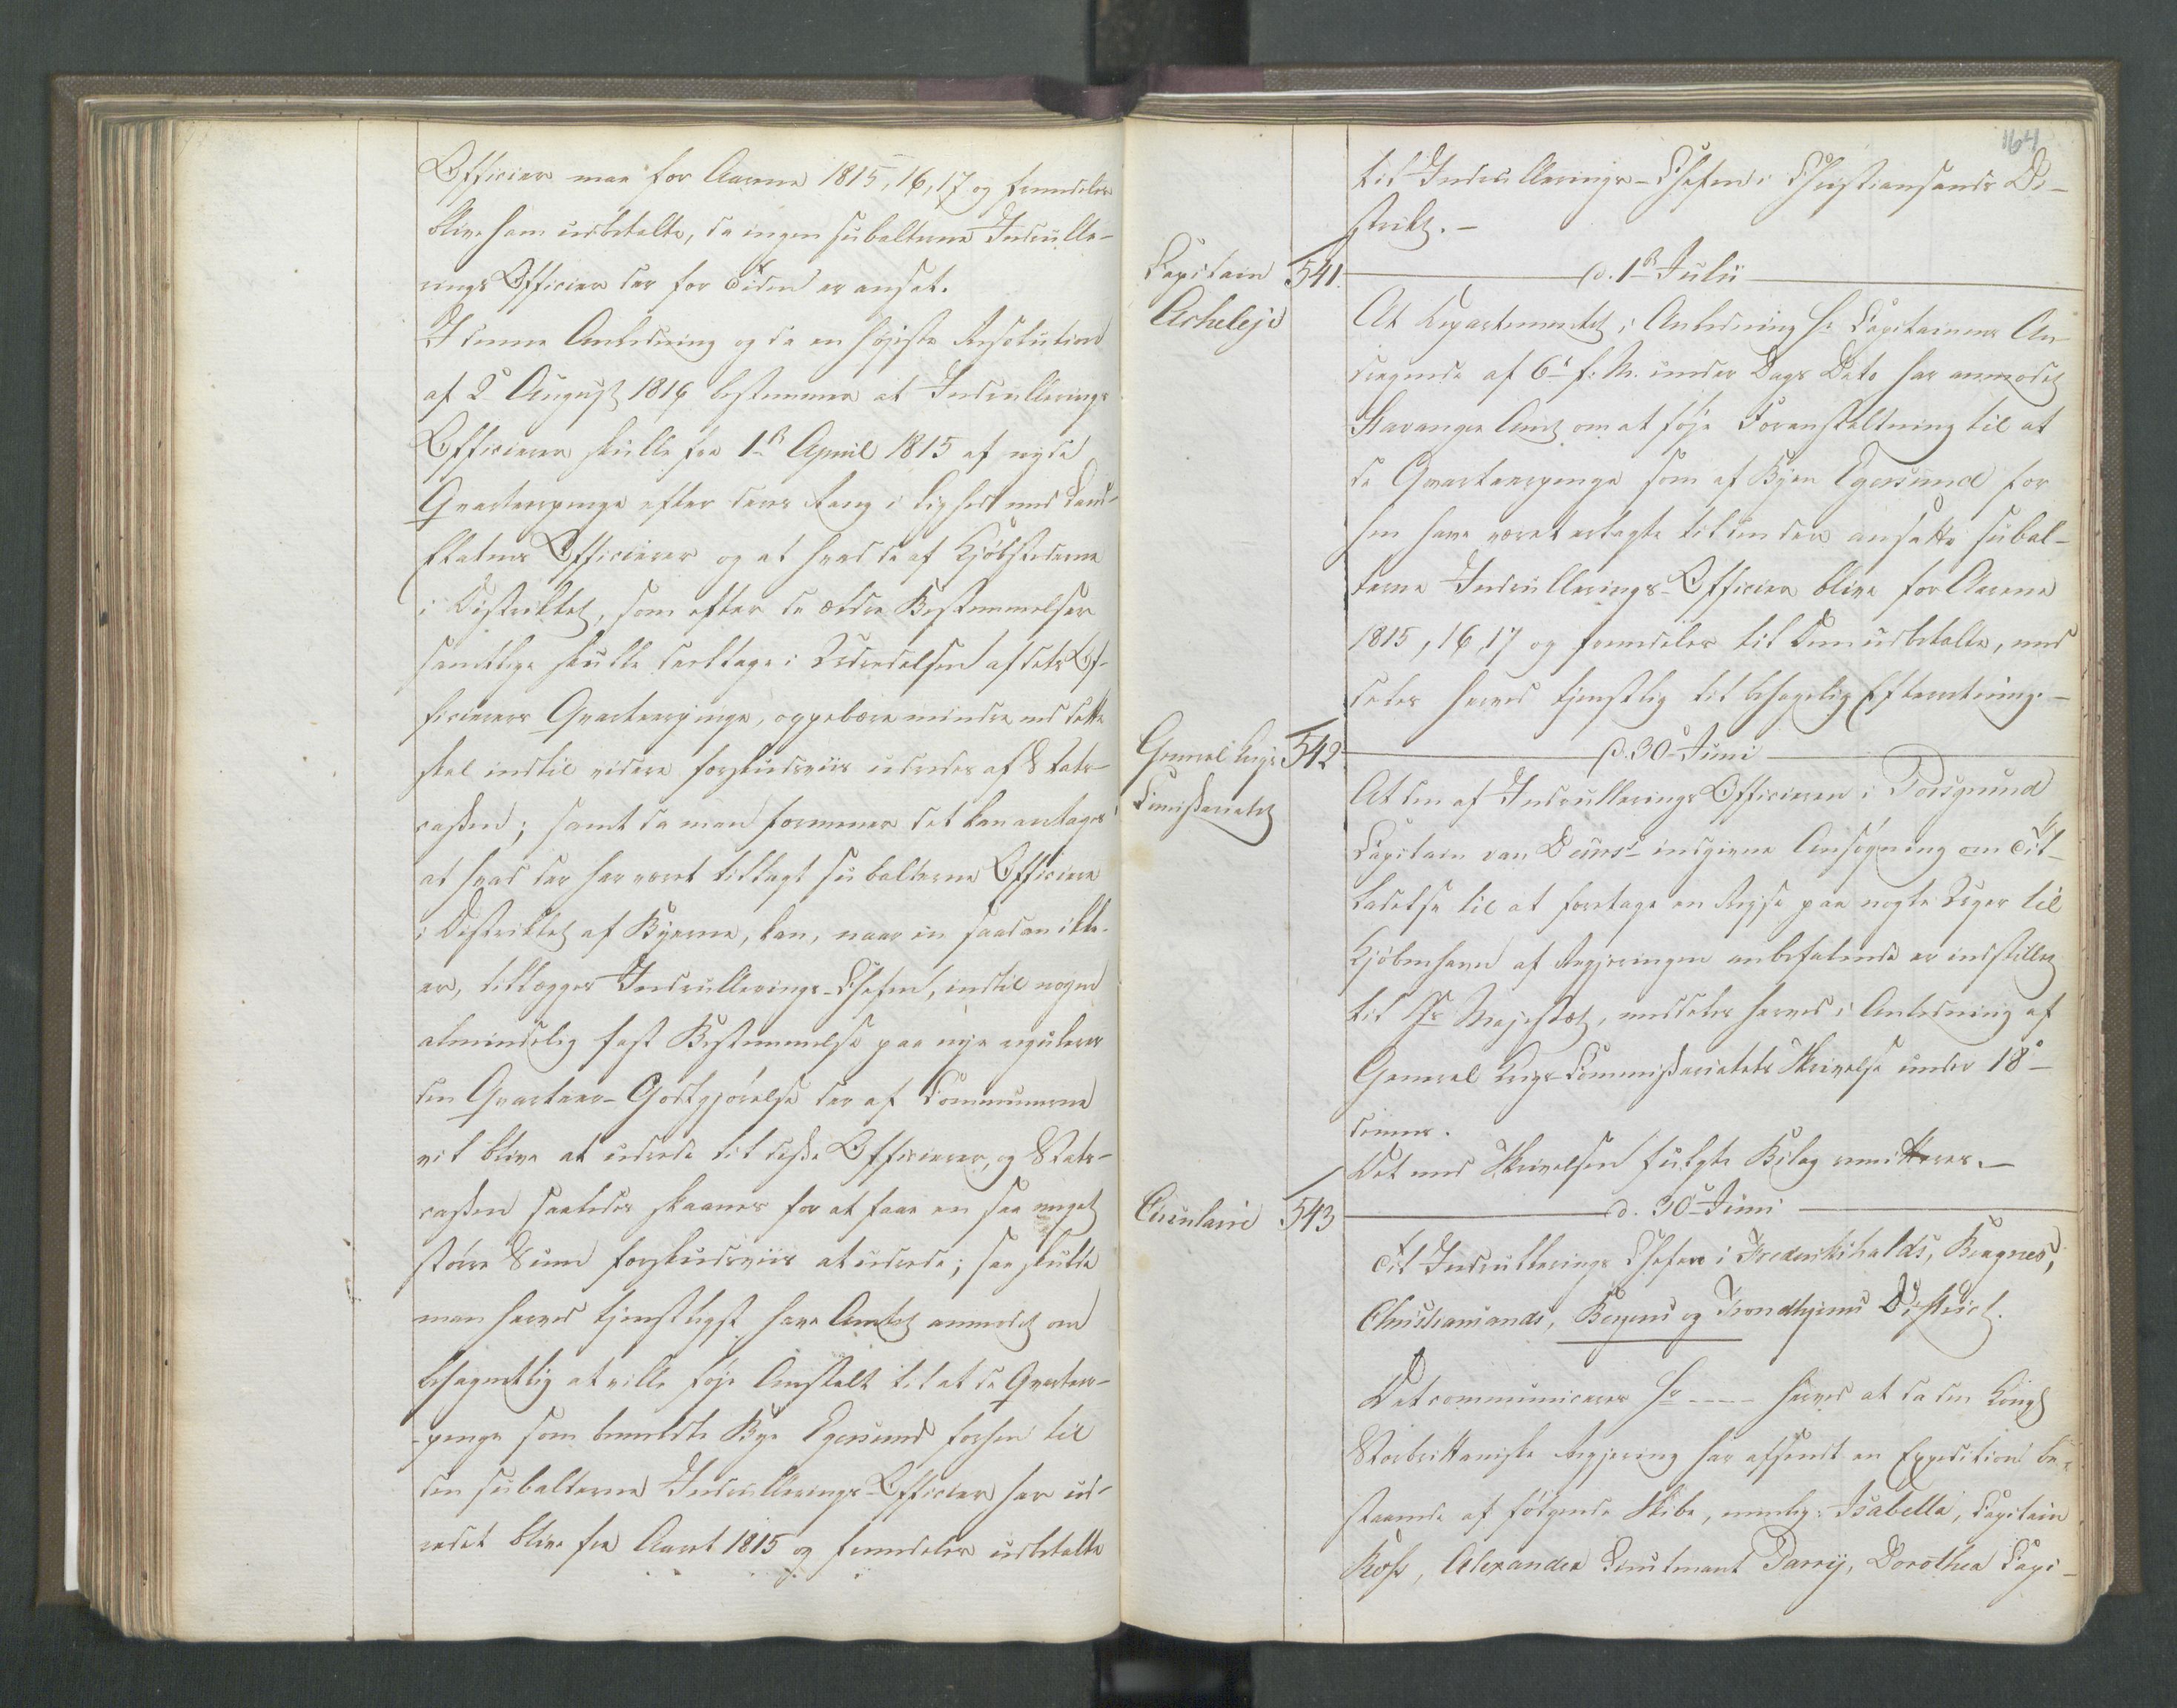 Officier maa for Aarene 1815, 16, 17 og fremdeles
blive ham udbetalte, da ingen subalterne Indrulle-
rings Officier der for Tiden er ansat.
I denne Anledning og da en høieste Resolution
af 2 August 1816 bestemmer at Indrullerings
Officierer skulle fra 1ste April 1815 af nyde
Qvarteerpenge efter deres Rang i Lighed med Land-
Etatens Officierer og at hvad de af Kjøbstæderne
i Distriktet, som efter de ældre Bestemmelser
samtlige skulle deeltage i Udredelsen af dets Of-
ficierers Qvarteerpenge, oppebære mindre end dette
skal indtil videre forskudsviis udredes af Stats-
cassen; samt da man formener det kan antages
at hvad der har været tillagt subalterne Officiere
i Distriktet af Byerne, kan, naar en saadan ikke
er, tillægges Indrullerings-Chefen, indtil nogen
almindelig fast Bestemmelse paa nye regulerer
den Qvarteer-Godtgjørelse der af Communerne
vil blive at udrede til disse Officierer, og Stats-
cassen saaledes skaanes for at faae en saa meget
større Sum forskudsviis at udrede; saa skulle
man herved tjenstligst have Amtet anmodet om
behageligt at ville føje Anstalt til at de Qvarteer-
-penge som bemeldte Bye Egersund forhen til
den subalterne Indrullerings-Officier har ud-
redet blive fra Aaret 1815 og fremdeles udbetalte
164
til Indrullerings-Chefen i Christiansands Di-
strikt. -
Capitain 541. d. 1ste Julii
Acheleje
At Departementet i Anledning Hr. Capitainens An-
dragende af 6te f. M. under Dags Dato har anmodet
Stavanger Amt om at føje Foranstaltning til at
de Qvarteerpenge som af Byen Egersund for
hen have været erlagte til den der ansatte subal-
terne Indrullerings-Officier blive for Aarene
1815, 16, 17 og fremdeles til Dem udbetalte, med
deles herved tjenstlig til behagelig Efterretning. -
General Krigs 542 d. 30 Juni
Commissariatet
At den af Indrullerings Officieren i Porsgrund
Capitain van Deurs indgivne Ansøgning om Til-
ladelse til at foretage en Rejse paa nogle Uger til
Kjøbenhavn af Regjeringen anbefalende er indstillet
til Hs Majestæt, meddeles herved i Anledning af
General Krigs-Commissariatets Skrivelse under 18de
dennes.
Det med Skrivelsen fulgte Bilag remitteres. -
Circulaire 543 d. 30 Juni
Til Indrullerings Chefen i Frederikshalds, Bragnes,
Christiansands, Bergens og Trondhjems District.
Det communiceres Hr ---- herved at da den Kongl
Storbrittaniske Regjering har afsendt en Expedition be-
staaende af følgende Skibe, nemlig: Isabella, Capitain
Ross, Alexander Lieutenant Parry, Dorothea Capi-